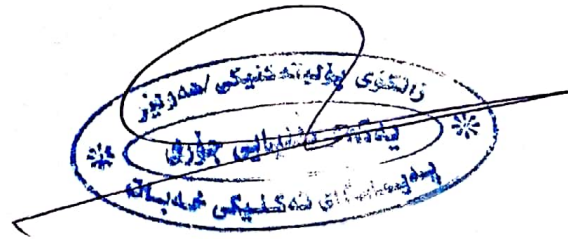 زانكۆی پۆلیتەكنیكی/هەولێر
یەكەی دڵنیایی جۆری
پەیمانگای تەكنیكی خەبات